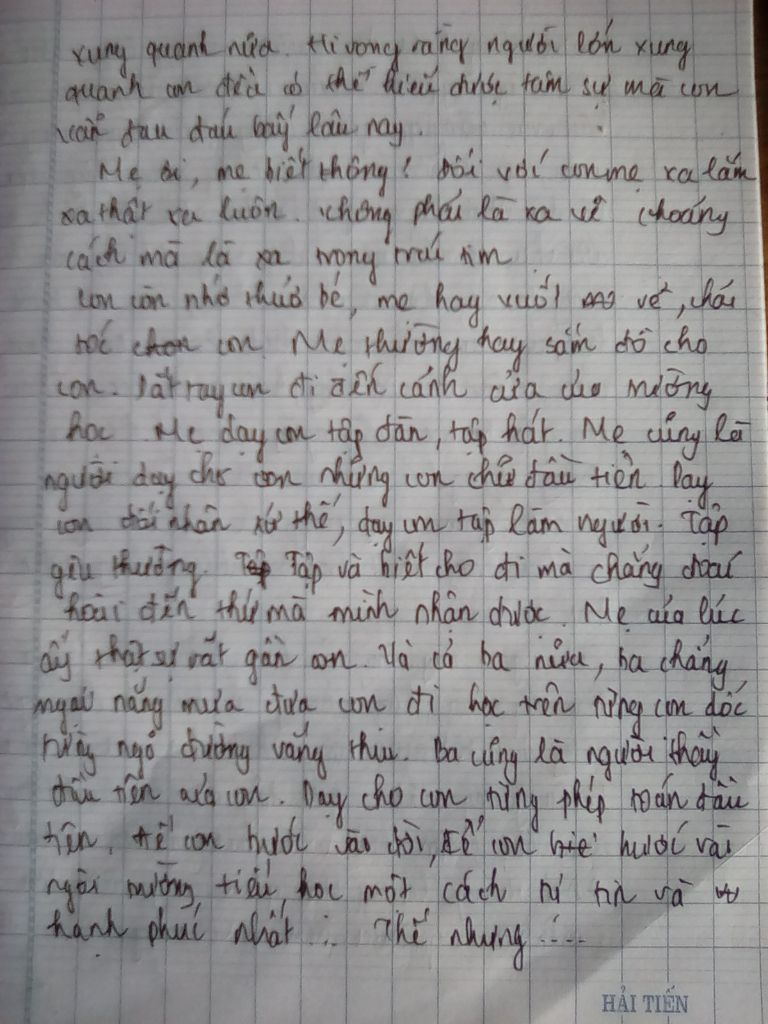 xung quanh nữa. Hi vọng rằng người lớn xung
quanh con đều có thể hiểu được tâm sự mà con
cần đau đáu bấy lâu nay.
Mẹ ơi, mẹ biết không! Đối với con mẹ xa lắm
xa thật xa luôn. Không phải là xa về khoảng
cách mà là xa trong trái tim
Con còn nhớ thuở bé, mẹ hay vuốt ve, chải
tóc cho con. Mẹ thường hay sắm đồ cho
con. Dắt tay con đi đến cánh cửa của trường
học. Mẹ dạy con tập đàn, tập hát. Mẹ cũng là
người dạy cho con những con chữ đầu tiên. Dạy
con đối nhân xử thế, dạy con tập làm người. Tập
yêu thương. Tập và biết cho đi mà chẳng đoái
hoài đến thứ mà mình nhận được. Mẹ của lúc
ấy thật sự rất gần con. Và cả ba nữa, ba chẳng
ngại nắng mưa đưa con đi học trên từng con dốc
từng ngõ đường vắng thiu. Ba cũng là người thầy
đầu tiên của con. Dạy cho con từng phép toán đầu
tiên, để con bước vào đời, để con bước vào
ngôi trường tiểu học một cách tự tin và
hạnh phúc nhất... Thế nhưng.....
HẢI TIẾN